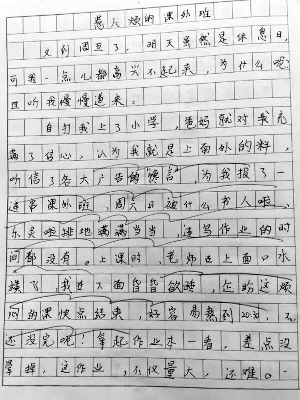 惹人烦的课外班
又到周五了，明天虽然是休息日，
可我一点儿都高兴不起来，为什么呢？
且听我慢慢道来。
自打我上了小学，爸妈就对我充
满了信心，认为我就是上面外的料，
听信了各大广告的谗言，为我报了一
连串课外班，周六日被什么书人啦、
乐灵啦排地满满当当，连写作业的时
间都没有。上课时，老师在上面口水
横飞，我在下面昏昏欲睡，在盼这烦
闷的课快点结束，好容易熬到20:30，不，
还没完呢！拿起作业本一看，差点没
晕掉，这作业，不仅量大，还难。一